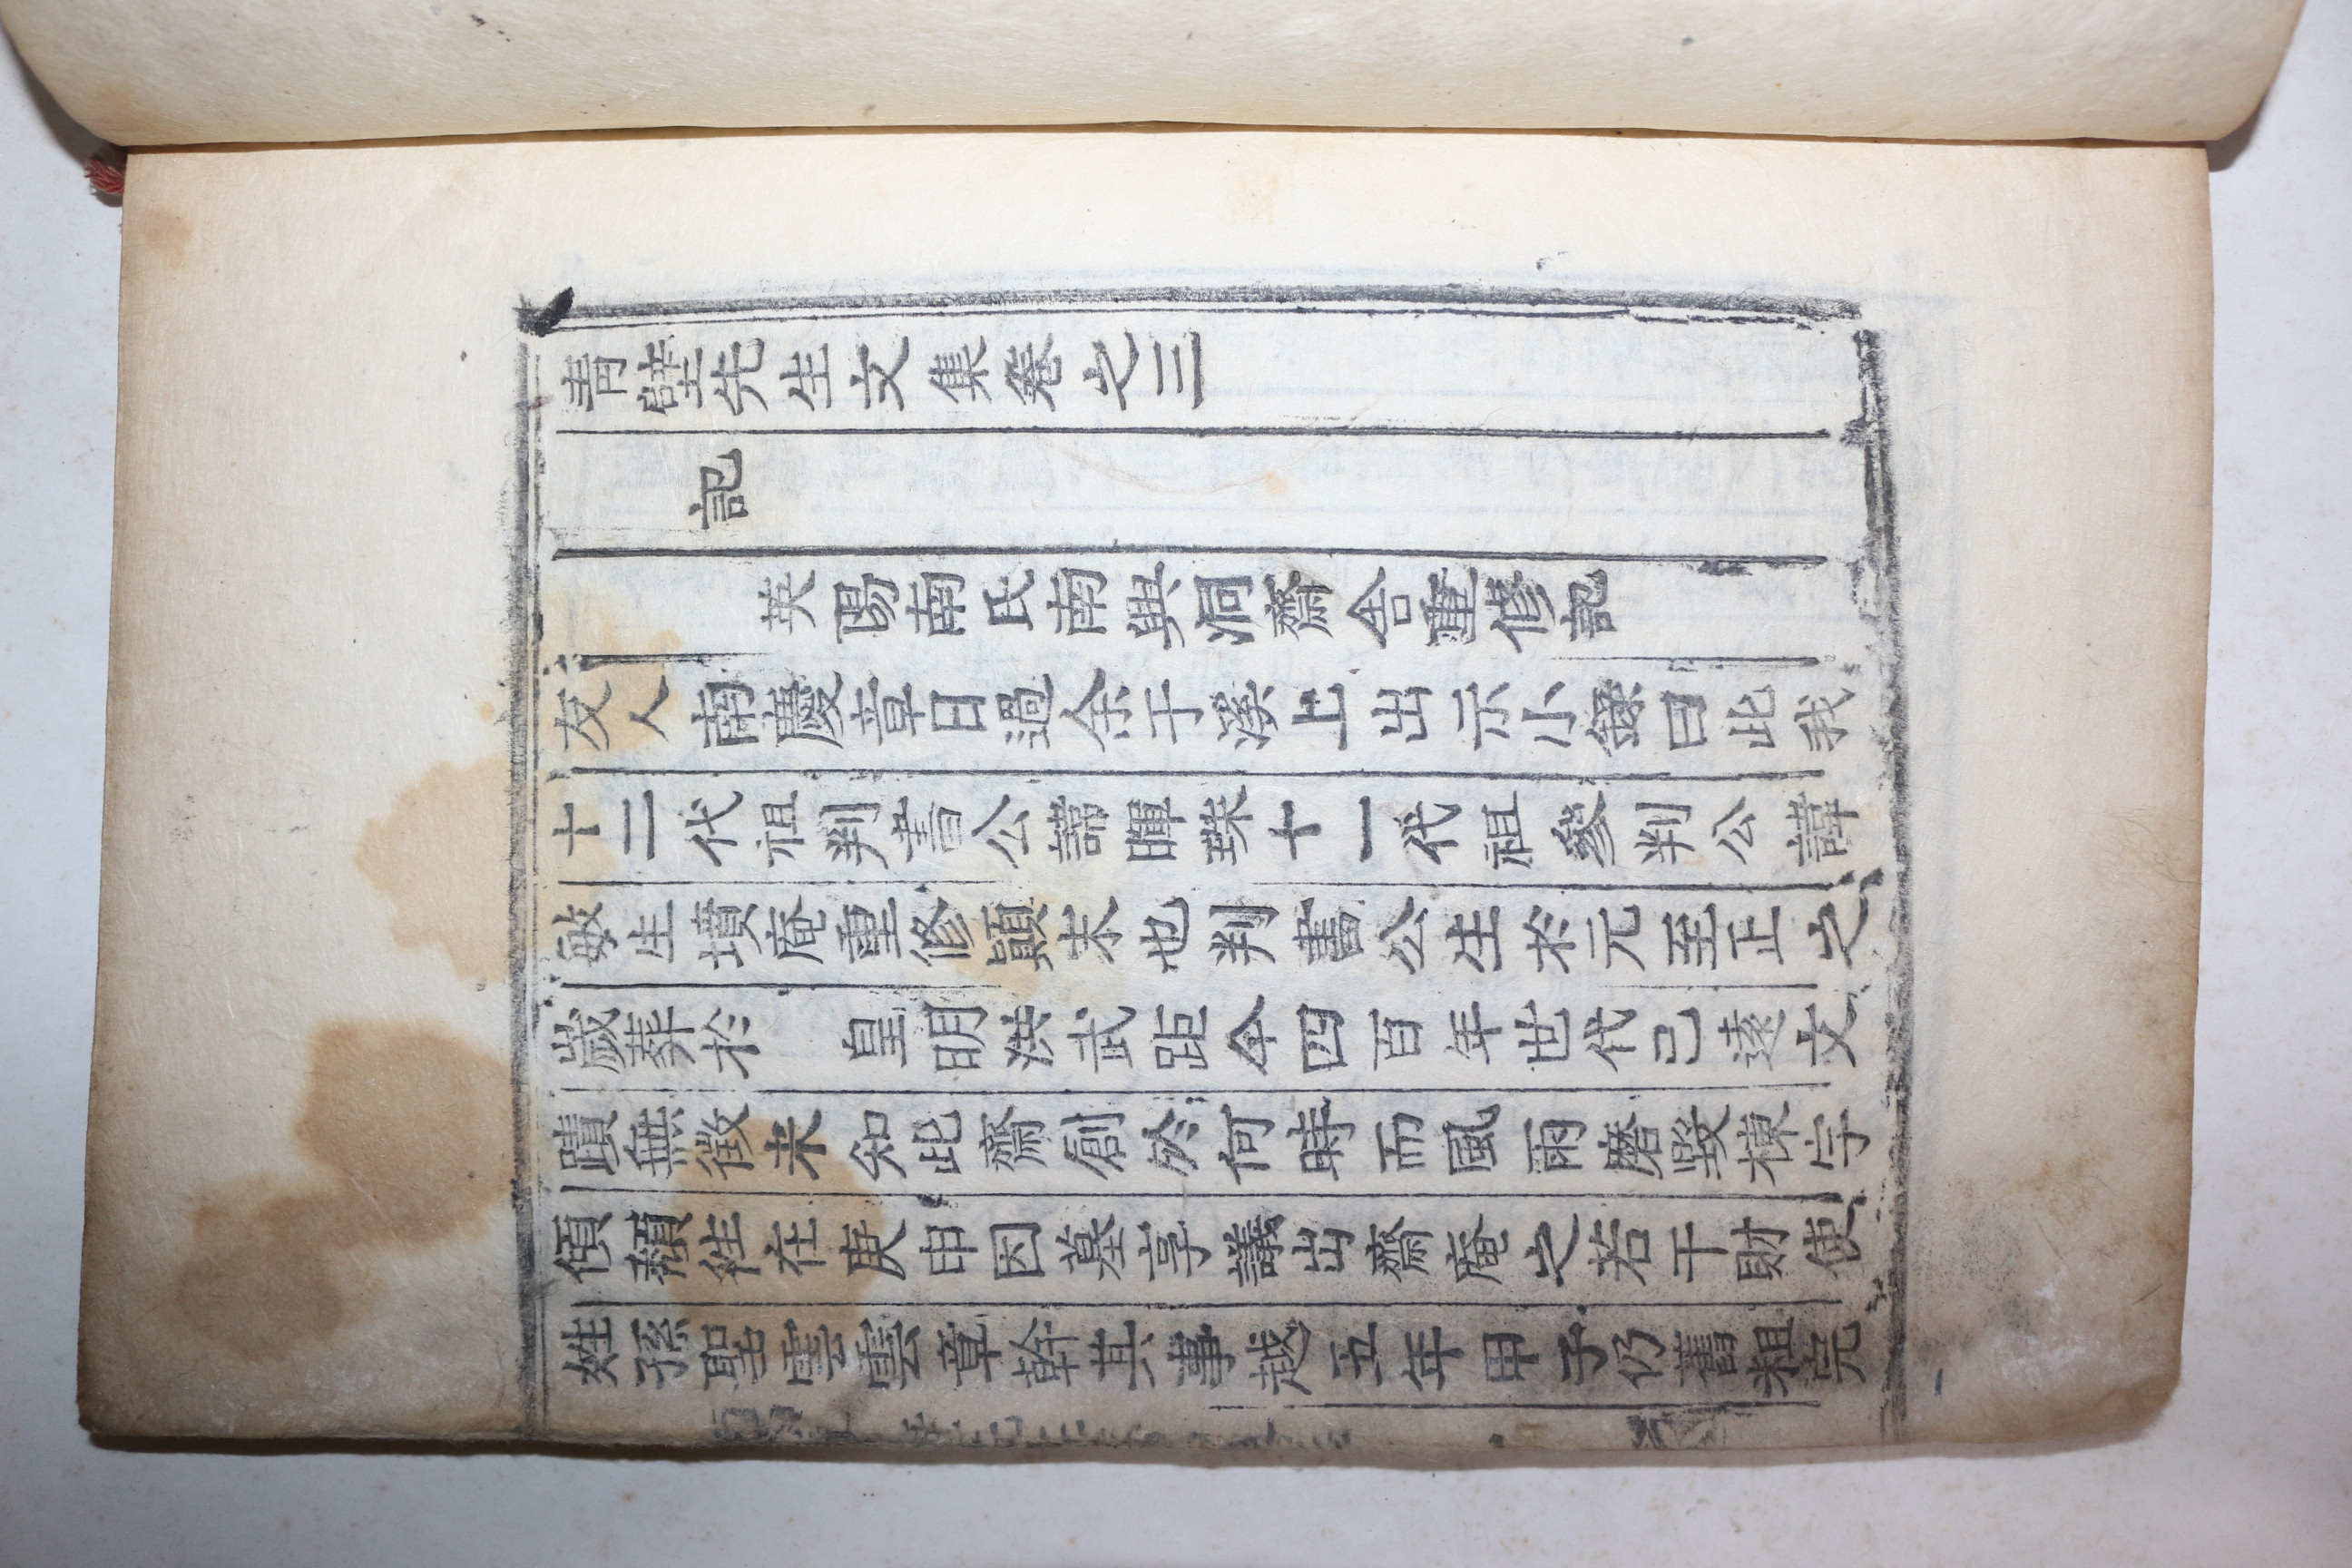 青壁先生文集卷之三
記
英陽南氏南興洞齋舍重修記
友人南慶章日過余于溪上出示小錄曰此我
十二代祖判書公諱暉珠十一代祖參判公諱
敏生墳庵重修顚末也判書公生於元至正之
歲葬於 皇明洪武距今四百年世代已遠文
蹟無徵未知此齋創於何時而風雨磨毀棟宇
傾頹往在庚申因墓享議出齋庵之若干財使
姓孫聖雲章幹其事越五年甲子仍舊粗完